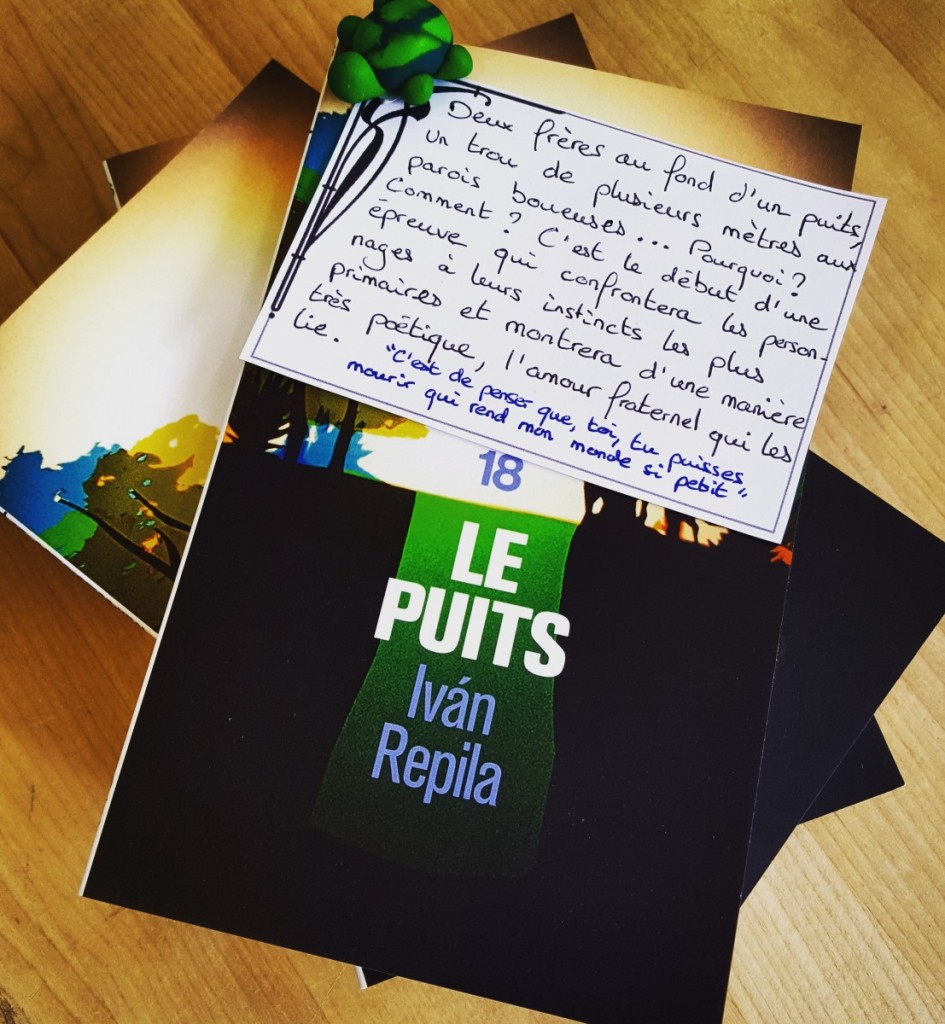 Deux frères au fond d'un puits,
un trou de plusieurs mètres aux
parois boueuses... Pourquoi?
Comment? C'est le début d'une
épreuve qui confrontera les person-
nages à leurs instincts les plus
primaires et montrera d'une manière
très poëtique, l'amour fraternel qui les
lie.
"C'est de penser que, toi, tu puisses
mourir qui rend mon monde si petit"
18
LE
PUITS
Iván
Repila